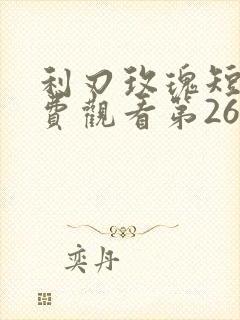 利刃玫瑰短
費觀看第26
奕丹